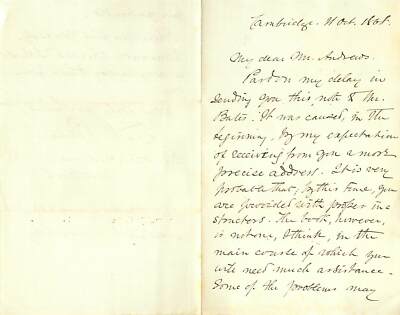 Cambridge. 11 Oct. 1868.
My dear Mr. Andrews.
Pardon my delay in
sending you this note to Mr.
Bates. It was caused, in the
beginning, by my expectation
of receiving from you a more
precise address. It is very
probable that, by this time, you
are provided with proper in-
structors. The book, however,
is not one, I think, in the
main course of which you
will need much assistance.
Some of the problems may